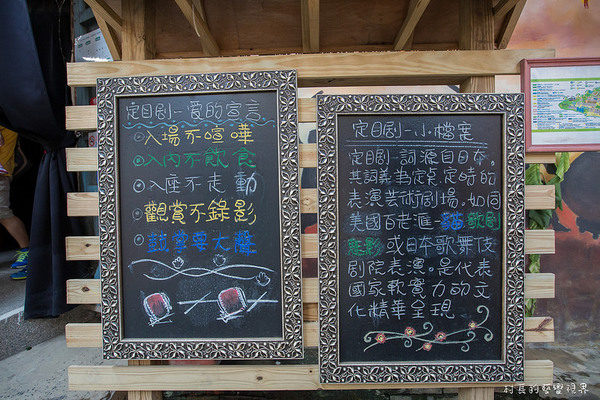 定目劇-愛的宣言
◎入場不喧嘩
◎入內不飲食
◎入座不走動
◎觀賞不錄影
◎鼓掌要大聲
定目劇-小檔案
定目劇一詞源自日本。
其詞義為定点、定時的
表演芸術劇場。如同
美國百老滙-貓歌劇
魅影或日本歌舞伎
劇院表演。是代表
國家軟實力的文
化精華呈現